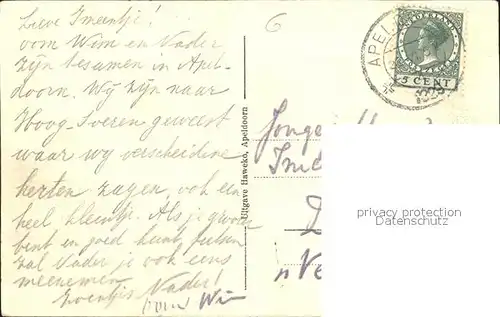 Lieve Imeentje!
oom Wim en Vader
zijn tesamen in Apel-
doorn. Wij zijn naar
Hoog-Soeren geweest
waar wij verscheidene
herten zagen, ook een
heel kleintje. Als je groot
bent en goed kunt fietsen
zal Vader je ook eens
meenemen.
Zoentjes Vader!
oom Wim
6
Uitgave Haweko, Apeldoorn
APEL
NEDERLAND
5 CENT
Jonge
privacy protection
Datenschutz